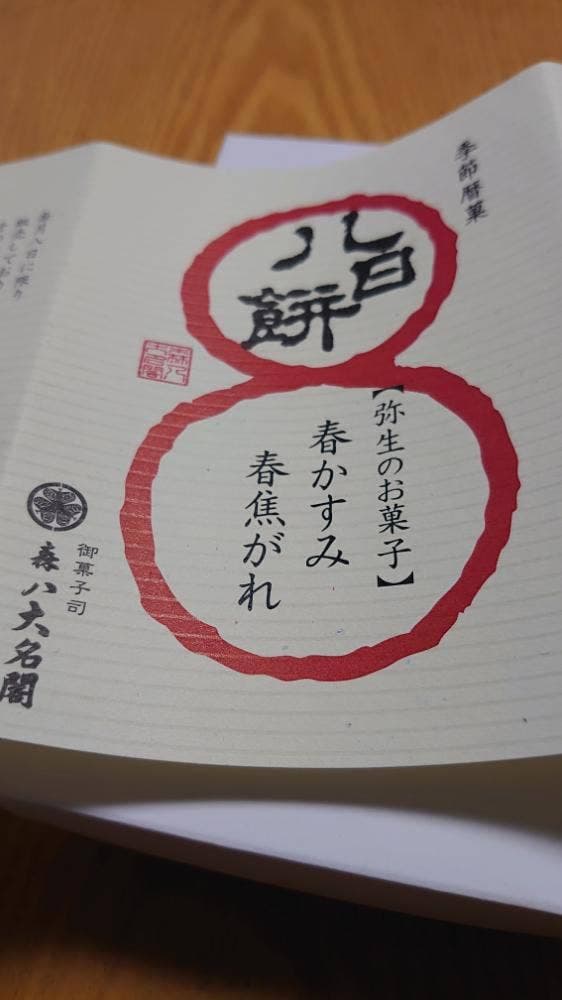 季節暦菓
八日餅
【弥生のお菓子】
春かすみ
春焦がれ
御菓子司
森八大名閣
毎月八日に限り